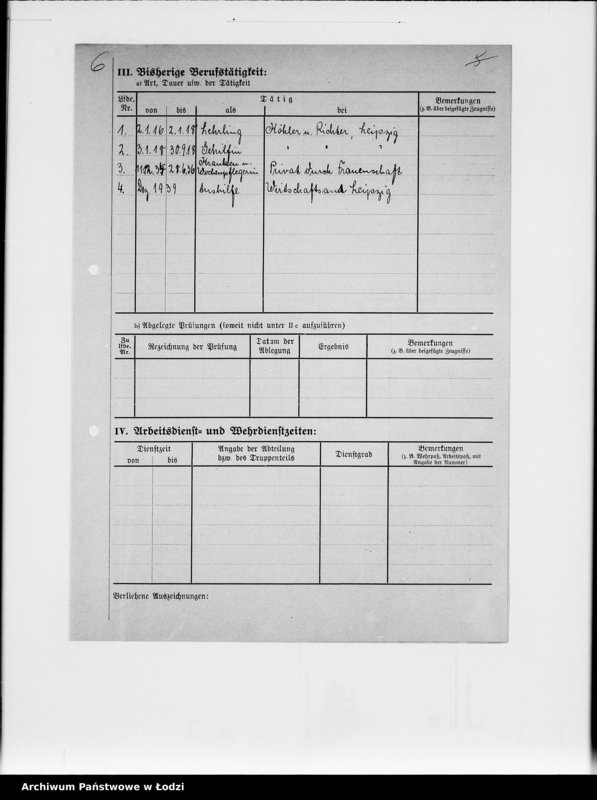 6
5
III. Bisherige Berufstätigkeit:
a) Art, Dauer usw. der Tätigkeit
Lfde. Nr. Tätig Bemerkungen
von bis als bei (z. B. über beigefügte Zeugnisse)
1. 2.1.16 2.1.18 Lehrling Köhler u. Richter, Leipzig
2. 3.1.18 30.9.18 Gehilfin " "
3. 34 28.6.36 Kranken u. Wochenpflegerin Privat durch Frauenschaft
4. Dez 1939 Aushilfe Wirtschaftsamt Leipzig
b) Abgelegte Prüfungen (soweit nicht unter II c aufzuführen)
Zu lfde. Nr. Bezeichnung der Prüfung Datum der Ablegung Ergebnis Bemerkungen (z. B. über beigefügte Zeugnisse)
IV. Arbeitsdienst- und Wehrdienstzeiten:
Dienstzeit Angabe der Abteilung Dienstgrad Bemerkungen
von bis bzw. des Truppenteils (z. B. Wehrpaß, Arbeitspaß, mit Angabe der Nummer)
Verliehene Auszeichnungen:
Archiwum Państwowe w Łodzi